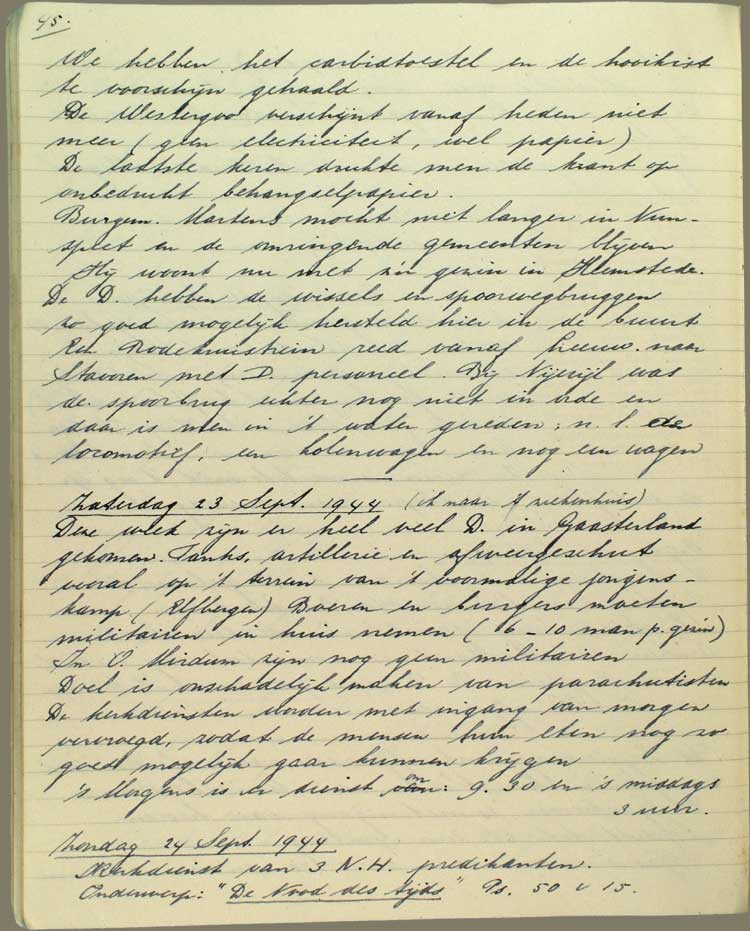 45.
We hebben het carbidtoestel en de hooikist
te voorschijn gehaald.
De Westergoo verschijnt vanaf heden niet
meer (geen electriciteit, wel papier)
De laatste keren drukte men de krant op
onbedrukt behangselpapier.
Burgem. Martens mocht niet langer in Nun-
speet en de omringende gemeenten blijven
Hij woont nu met z'n gezin in Heemstede.
De D. hebben de wissels en spoorwegbruggen
zo goed mogelijk hersteld hier in de buurt
Een Rodekruistrein reed vanaf Leeuw. naar
Stavoren met D. personeel. Bij Nijezijl was
de spoorbrug echter nog niet in orde en
daar is men in 't water gereden; n.l. de
locomotief, een kolenwagen en nog een wagen
Zaterdag 23 Sept. 1944 (ik naar ziekenhuis)
Deze week zijn er heel veel D. in Gaasterland
gekomen. Tanks, artillerie en afweergeschut
vooral op 't terrein van 't voormalige jongens-
kamp (Elfbergen) Boeren en burgers moeten
militairen in huis nemen (6 - 10 man p. gezin)
In O. Mirdum zijn nog geen militairen
Doel is onschadelijk maken van parachutisten
De kerkdiensten worden met ingang van morgen
vervroegd, zodat de mensen hun eten nog zo
goed mogelijk gaar kunnen krijgen
's Morgens is er dienst om: 9.30 en 's middags
3 uur.
Zondag 24 Sept. 1944
Kerkdienst van 3 N.H. predikanten.
Onderwerp: "De Nood des tijds" Ps. 50 v 15.